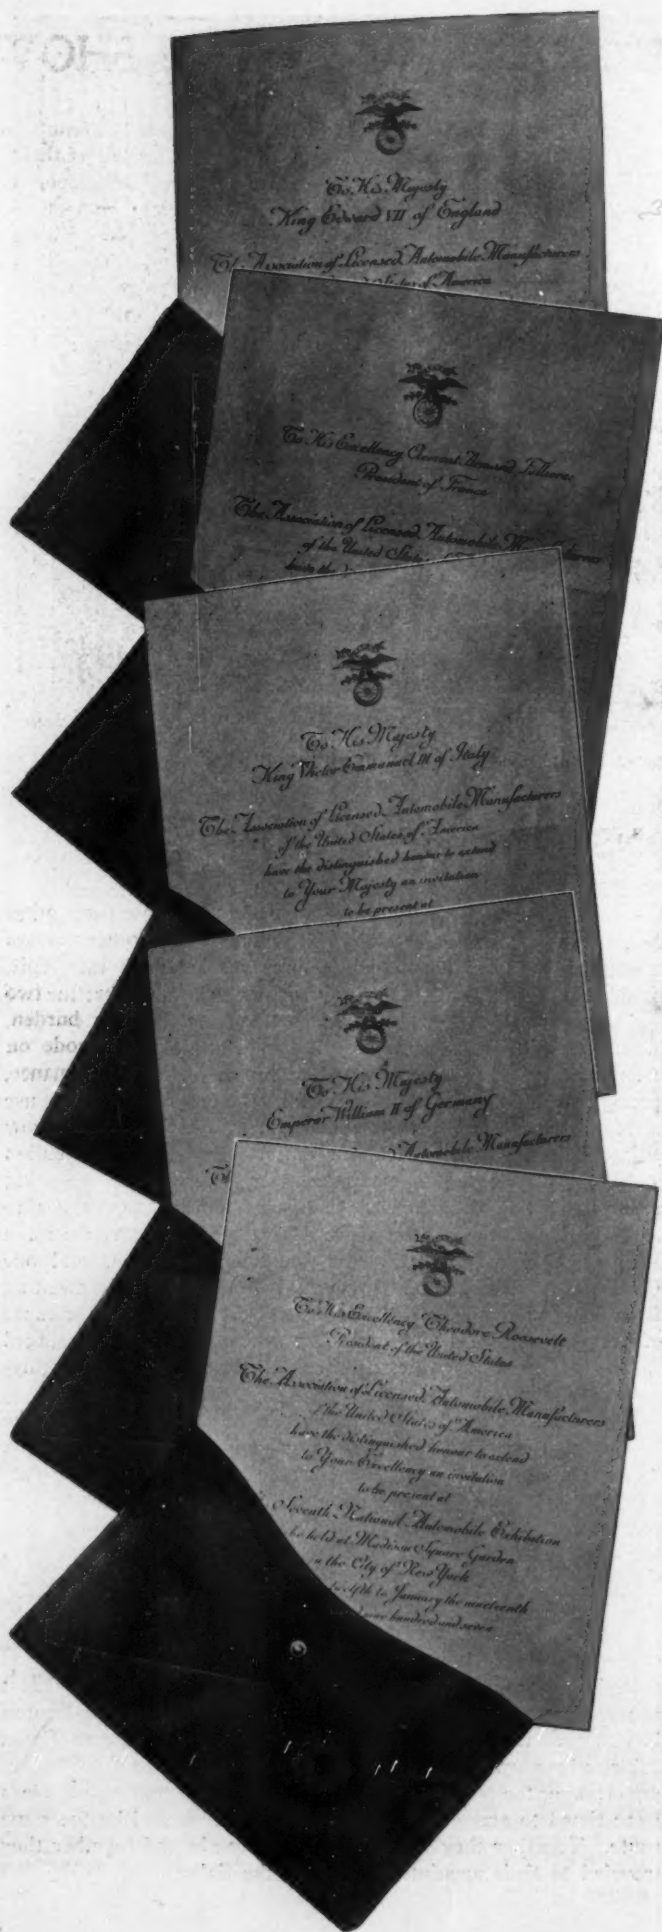 To His Majesty
King Edward VII of England
The Association of Licensed Automobile Manufacturers
States of America
To His Excellency Clement Armand Fallieres
President of France
The Association of Licensed Automobile Manufacturers
of the United States of
have the
To His Majesty
King Victor Emmanuel III of Italy
The Association of Licensed Automobile Manufacturers
of the United States of America
have the distinguished honour to extend
to Your Majesty an invitation
to be present at
To His Majesty
Emperor William II of Germany
Automobile Manufacturers
To His Excellency Theodore Roosevelt
President of the United States
The Association of Licensed Automobile Manufacturers
of the United States of America
have the distinguished honour to extend
to Your Excellency an invitation
to be present at
Seventh National Automobile Exhibition
be held at Madison Square Garden
in the City of New York
twelfth to January the nineteenth
nine hundred and seven